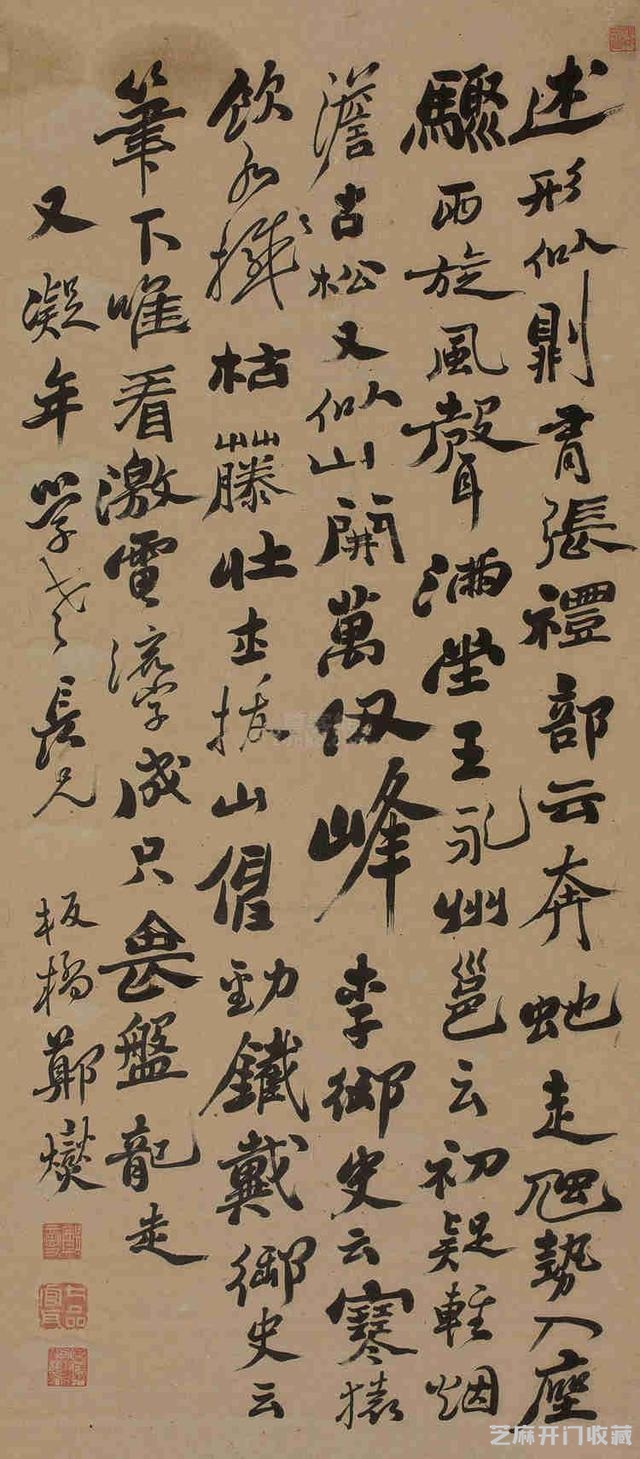 述形似則有張禮部云奔虵走虺勢入座
驟雨旋風聲滿堂王永州邕云初疑輕烟
澹古松又似山開萬仞峰李御史云寒猿
飲水撼枯藤壯士拔山伸勁鐵戴御史云
筆下唯看激電流字成只畏盤龍走
又凝年學老長兄 板橋鄭燮
七品官耳
芝麻开门收藏